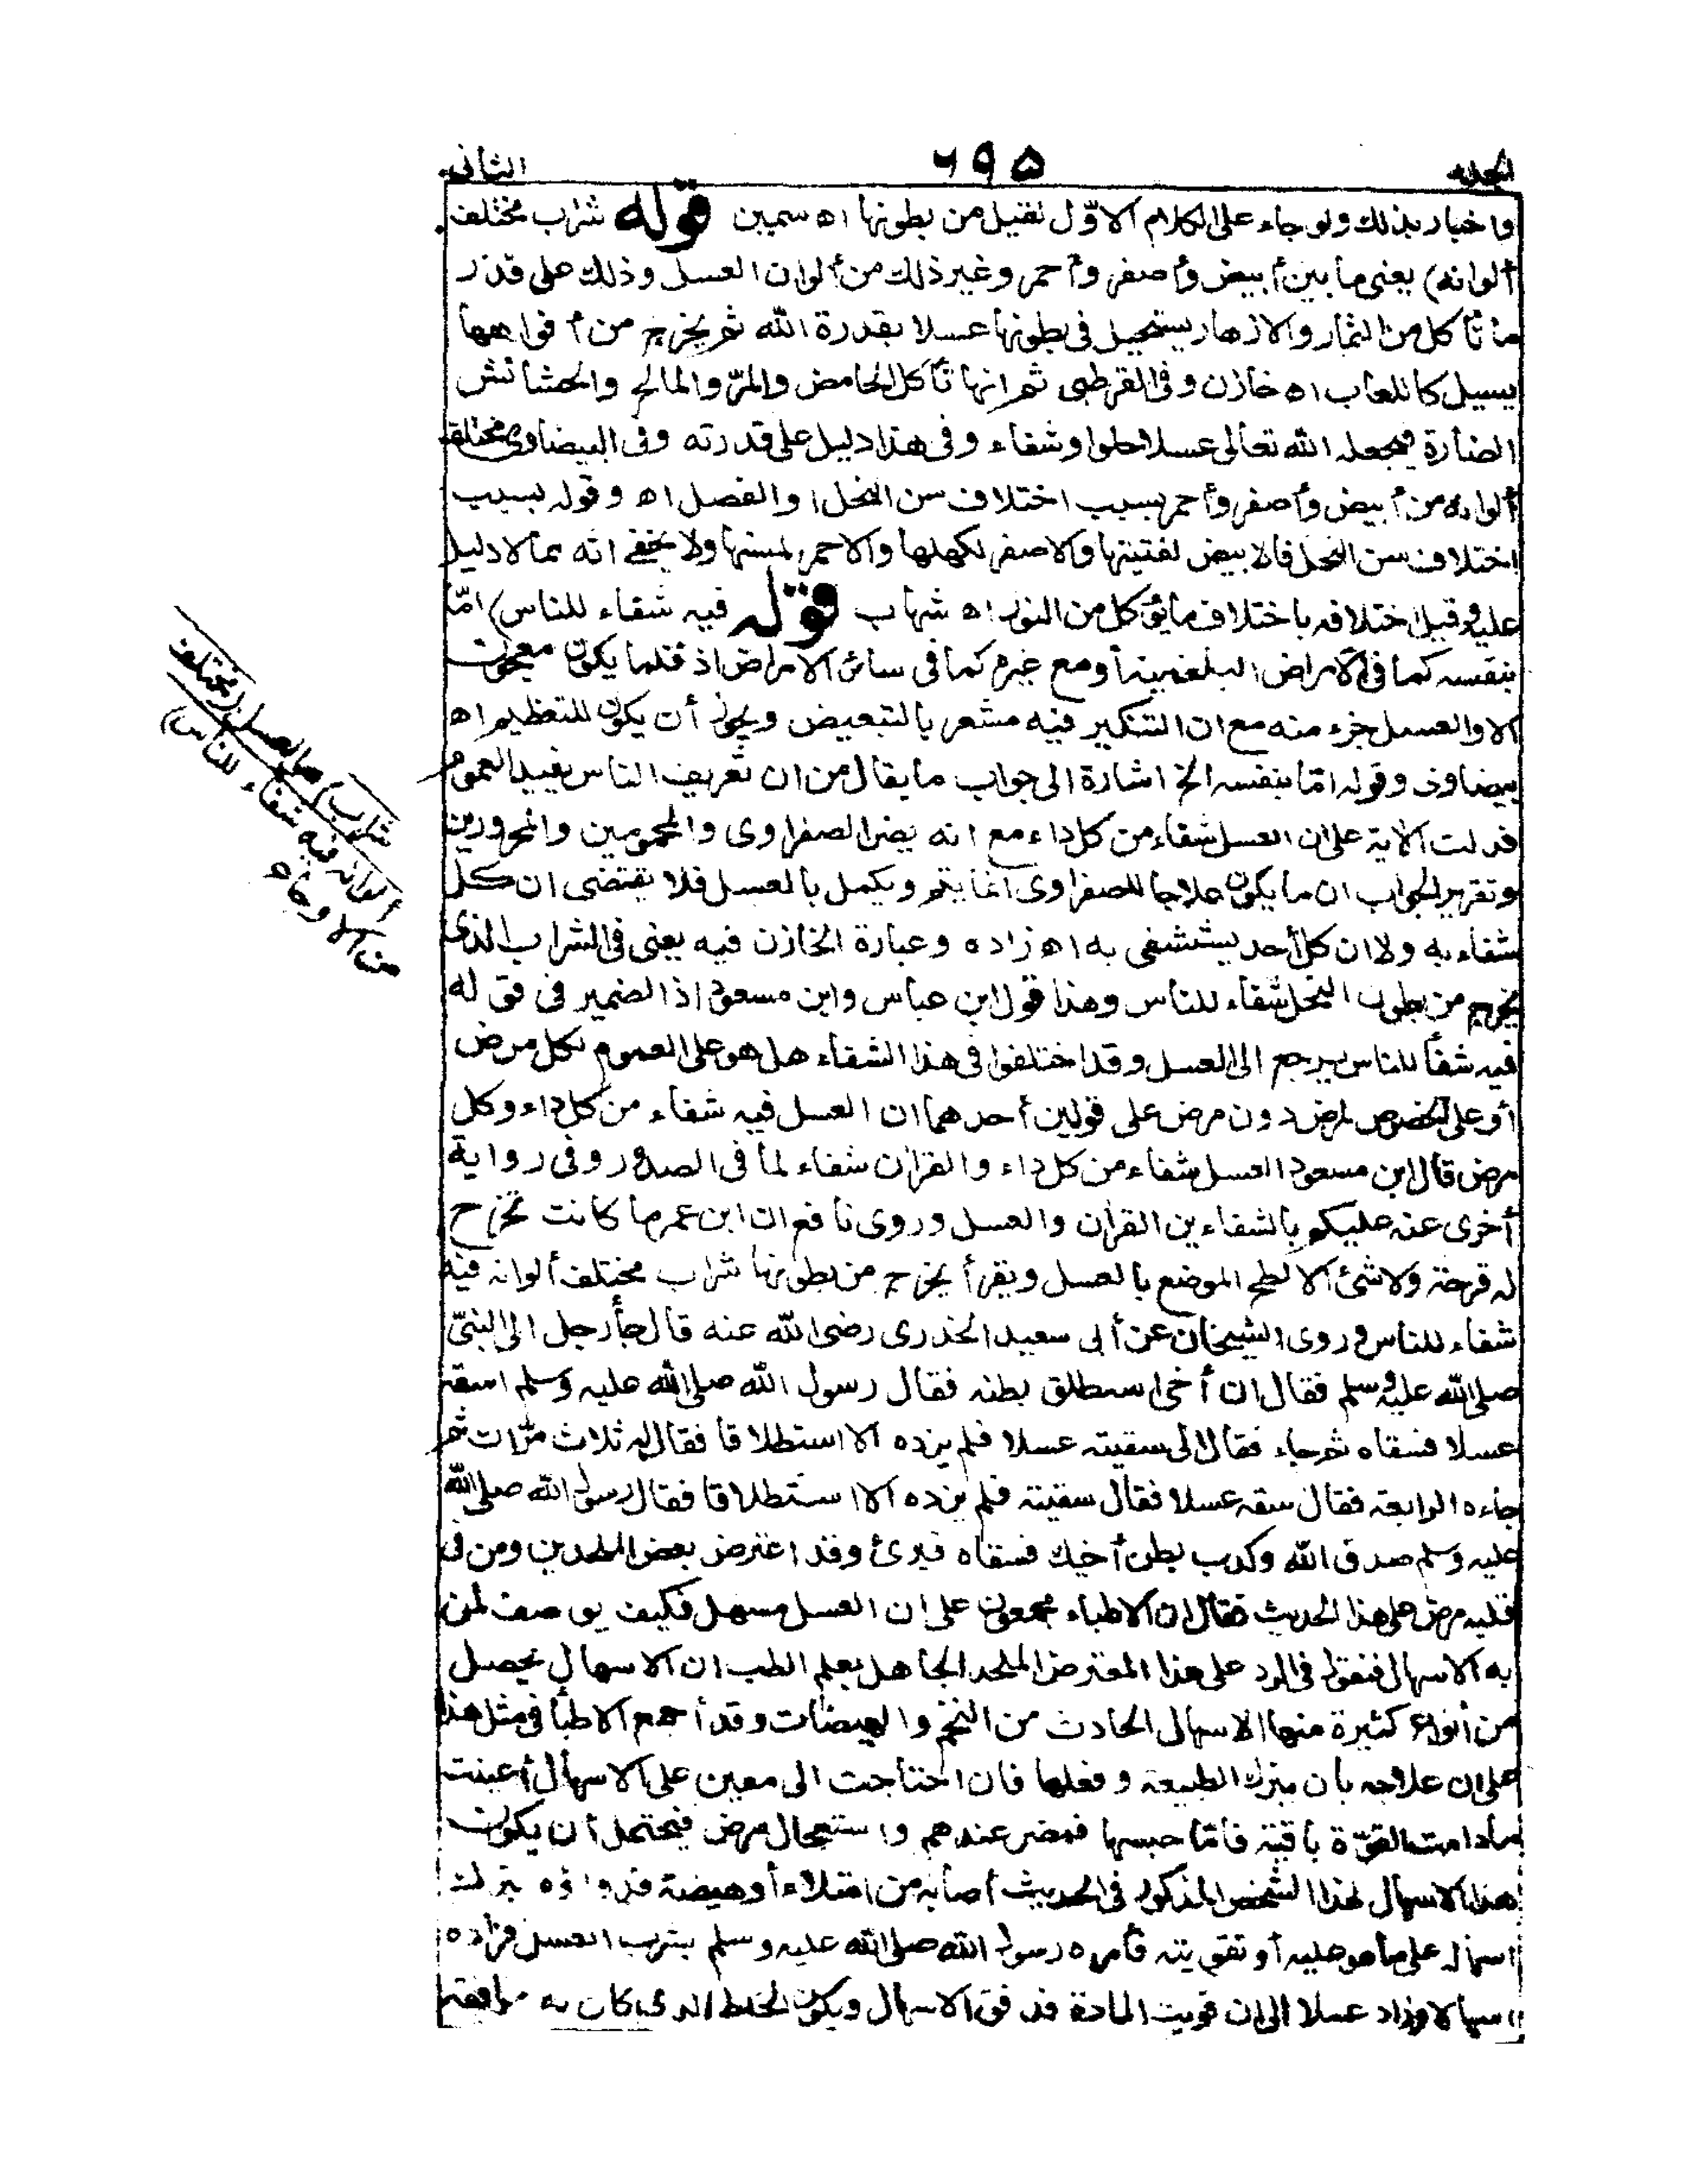 الجلد ٦٩٥ الثانى
واخبار بذلك ولو جاء على الكلام الاوّل لقيل من بطونها اه سمين قوله شراب مختلف
ألوانه) يعنى ما بين أبيض وأصفر وأحمر وغير ذلك من ألوان العسل وذلك على قدر
ما تأكل من الثمار والازهار يستحيل فى بطونها عسلا بقدرة الله ثم يخرج من أفواهها
يسيل كاللعاب اه خازن وفى القرطبى ثم انها تأكل الحامض والمرّ والمالح والحشائش
الضارة فيجعله الله تعالى عسلا حلوا وشفاء وفى هذا دليل على قدرته وفى البيضاوى مختلف
ألوانه من أبيض وأصفر وأحمر بسبب اختلاف سن النحل أو الفصل اه وقوله بسبب
اختلاف سن النحل فالابيض لفتيتها والاصفر لكهلها والاحمر لمسنها ولا يخفى انه مما لا دليل
عليه وقيل اختلافه باختلاف ما يؤكل من النور اه شهاب قوله فيه شفاء للناس) امّا
بنفسه كما فى الامراض البلغمية أو مع غيره كما فى سائر الامراض اذ قلما يكون معجون
الا والعسل جزء منه مع ان التنكير فيه مشعر بالتبعيض ويجوز أن يكون للتعظيم اه
بيضاوى وقوله امّا بنفسه الخ اشارة الى جواب ما يقال من ان تعريف الناس يفيد العموم
فدلت الآية على ان العسل شفاء من كل داء مع انه يضر الصفراوى والمحمومين والمحرورين
وتقرير الجواب ان ما يكون علاجا للصفراوى انما يتم ويكمل بالعسل فلا يقتضى ان كل
شفاء به ولا ان كل أحد يستشفى به اه زاده وعبارة الخازن فيه يعنى فى الشراب الذى
يخرج من بطون النحل شفاء للناس وهذا قول ابن عباس وابن مسعود اذ الضمير فى قوله
فيه شفأ للناس يرجع الى العسل وقد اختلفوا فى هذا الشفاء هل هو على العموم لكل مرض
أو على الخصوص لمرض دون مرض على قولين أحدهما ان العسل فيه شفاء من كل داء وكل
مرض قال ابن مسعود العسل شفاء من كل داء والقرآن شفاء لما فى الصدور وفى رواية
أخرى عنه عليكم بالشفاءين القرآن والعسل وروى نافع ان ابن عمر ما كانت تخرج
له قرحة ولا شئ الا لطخ الموضع بالعسل ويقرأ يخرج من بطونها شراب مختلف ألوانه فيه
شفاء للناس وروى الشيخان عن أبى سعيد الخدرى رضى الله عنه قال جأ رجل الى النبىّ
صلى الله عليه وسلم فقال ان أخى استطلق بطنه فقال رسول الله صلى الله عليه وسلم اسقه
عسلا فسقاه ثم جاء فقال انى سقيته عسلا فلم يزده الا استطلاقا فقال له ثلاث مرّات ثم
جاءه الرابعة فقال اسقه عسلا فقال سقيته فلم يزده الا استطلاقا فقال رسول الله صلى الله
عليه وسلم صدق الله وكذب بطن أخيك فسقاه فبرئ وقد اعترض بعض الملحدين ومن فى
قلبه مرض على هذا الحديث فقال ان الاطباء مجمعون على ان العسل مسهل فكيف يوصف لمن
به الاسهال فنقول فى الرد على هذا المعترض الملحد الجاهل بعلم الطب ان الاسهال يحصل
من أنواع كثيرة منها الاسهال الحادث من التخم والهيضات وقد أجمع الاطبأ فى مثل هذا
على ان علاجه بأن يترك الطبيعة وفعلها فان احتاجت الى معين على الاسهال أعينت
مادامت القوّة باقية فامّا حبسها فمضر عندهم واستعجال مرض فيحتمل أن يكون
هذا الاسهال لهذا الشخص المذكور فى الحديث أصابه من امتلاء أو هيضة فدواؤه بترك
اسهاله على ما هو عليه أو تقويته فأمره رسول الله صلى الله عليه وسلم بشرب العسل فزاده
اسهالا وزاد عسلا الى ان قويت المادة فدفق الاسهال ويكون الخلط الذى كان به موافقته
شراب) هو العسل (مختلف
ألوانه فيه شفاء للناس)
من الاوجاع